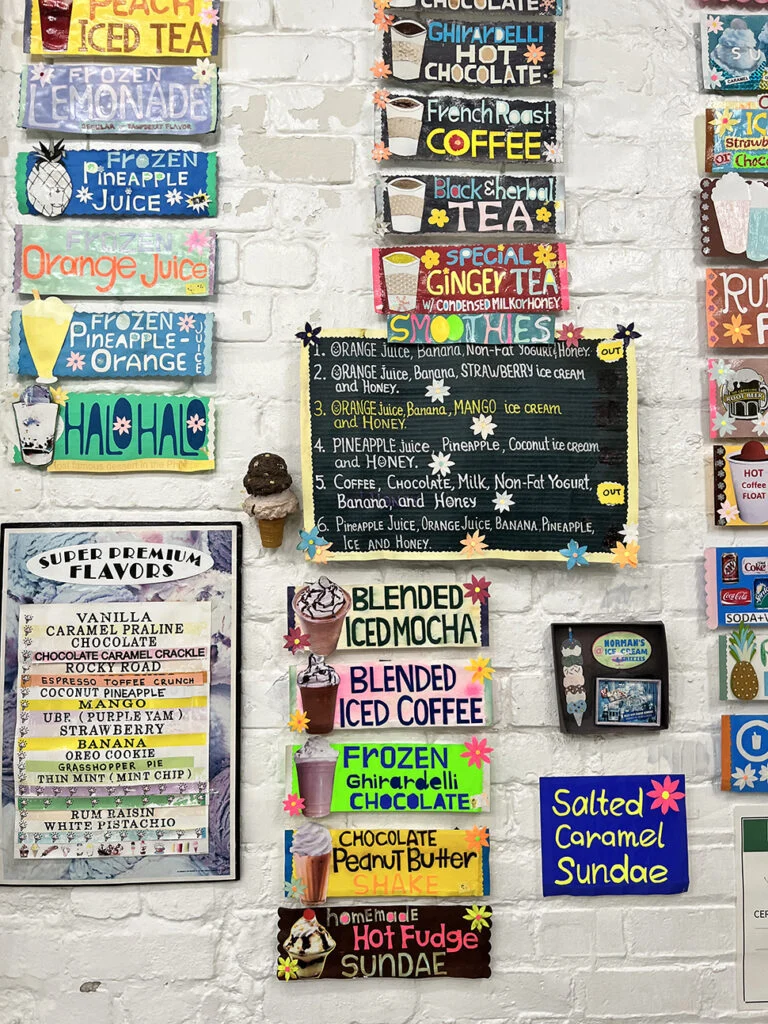 PEACH
ICED TEA
FROZEN
LEMONADE
REGULAR - RASPBERRY FLAVOR
FROZEN
PINEAPPLE
JUICE
FROZEN
Orange Juice
FROZEN
PINEAPPLE-
ORANGE
JUICE
HALO HALO
CHOCOLATE
GHIRARDELLI
HOT
CHOCOLATE
French Roast
COFFEE
Black & herbal
TEA
SPECIAL
GINGER TEA
W/ CONDENSED MILK OR HONEY
SMOOTHIES
1. ORANGE Juice, Banana, Non-Fat Yogurt & Honey. OUT
2. ORANGE Juice, Banana, STRAWBERRY ice cream
and HONEY.
3. ORANGE Juice, Banana, MANGO ice cream
and HONEY.
4. PINEAPPLE juice, Pineapple, Coconut ice cream
and HONEY.
5. COFFEE, Chocolate, Milk, Non-Fat Yogurt,
Banana, and Honey OUT
6. Pineapple Juice, ORANGE Juice, BANANA, PINEAPPLE,
ICE and HONEY.
SUPER PREMIUM
FLAVORS
VANILLA
CARAMEL PRALINE
CHOCOLATE
CHOCOLATE CARAMEL CRACKLE
ROCKY ROAD
ESPRESSO TOFFEE CRUNCH
COCONUT PINEAPPLE
MANGO
UBE (PURPLE YAM)
STRAWBERRY
BANANA
OREO COOKIE
GRASSHOPPER PIE
THIN MINT (MINT CHIP)
RUM RAISIN
WHITE PISTACHIO
BLENDED
ICED MOCHA
BLENDED
ICED COFFEE
FROZEN
Ghirardelli
CHOCOLATE
CHOCOLATE
Peanut Butter
SHAKE
HOMEMADE
Hot Fudge
SUNDAE
NORMAN'S
ICE CREAM
& FREEZES
Salted
Caramel
Sundae
SU
CARAMEL
Strawb
or Choc
RU
F
ROOT BEER
HOT
Coffee
FLOAT
Coke
Coca-Cola
SODA+